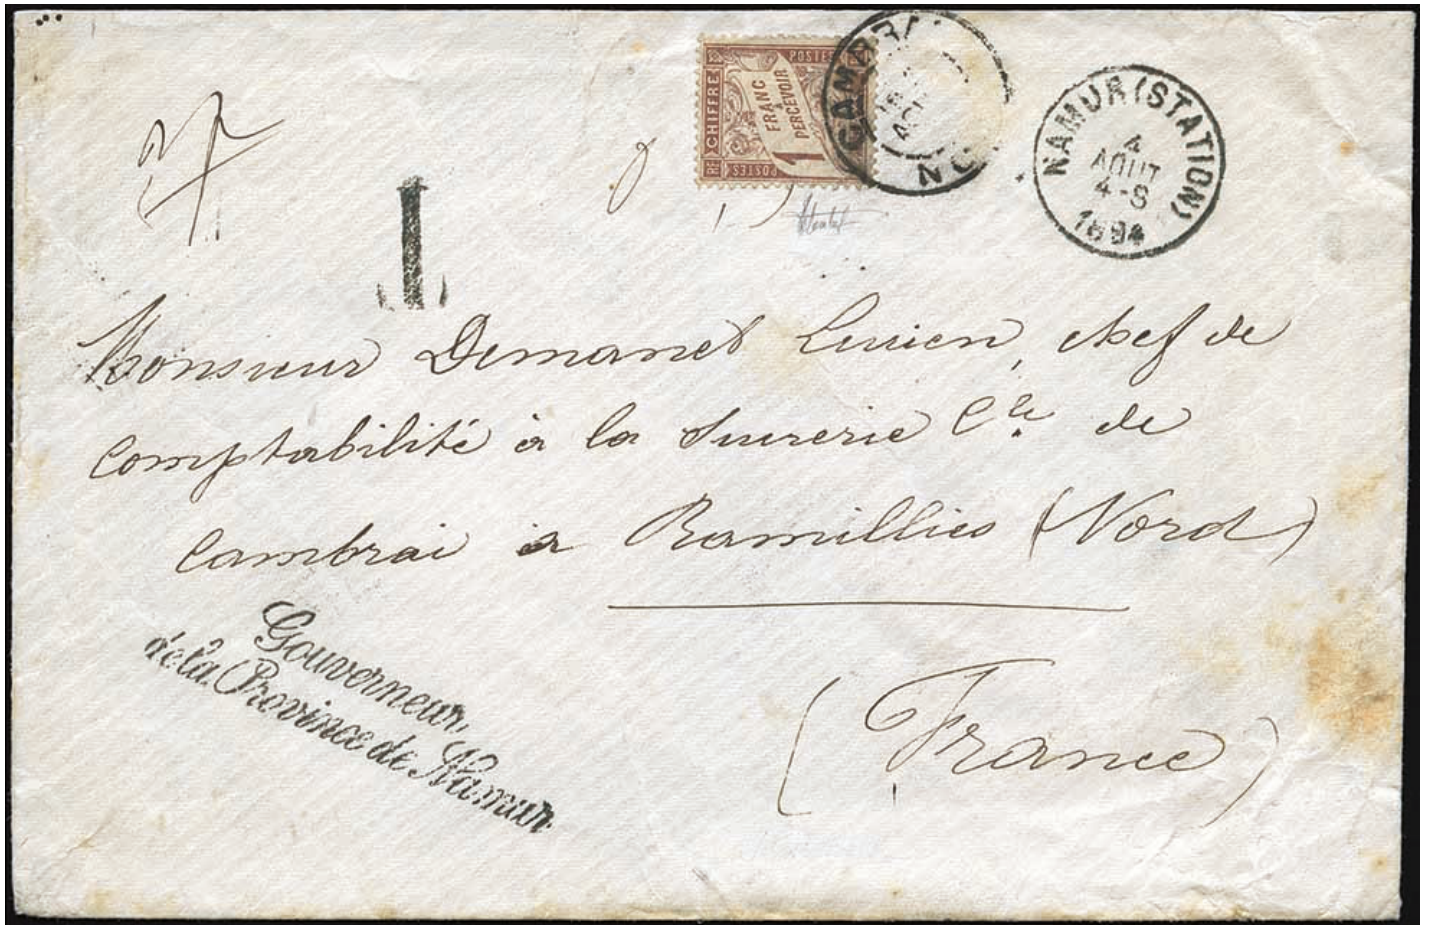 CHIFFRE
POSTES
1 FRANC
À
PERCEVOIR
POSTES
CAMBRAI
NO
NAMUR (STATION)
4
AOUT
4-S
1894
T
Monsieur Demanet Lucien, chef de
comptabilité à la Sucrerie Cle de
Cambrai à Ramillies (Nord)
(France)
Gouverneur
de la Province de Namur